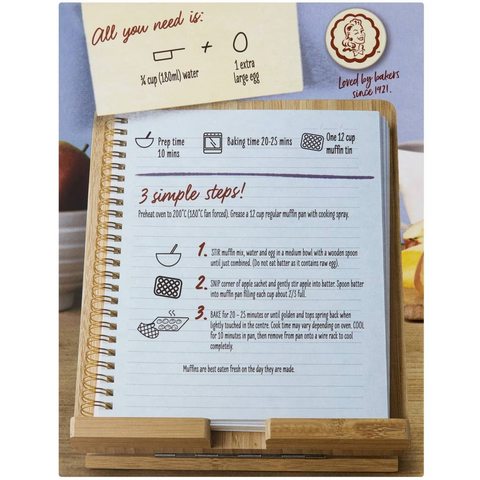 All you need is:
+
¾ cup (180ml) water
1 extra
large egg
Loved by bakers
since 1921.
Prep time
10 mins
Baking time 20-25 mins
One 12 cup
muffin tin
3 simple steps!
Preheat oven to 200°C (180°C fan forced). Grease a 12 cup regular muffin pan with cooking spray.
1. STIR muffin mix, water and egg in a medium bowl with a wooden spoon
until just combined. (Do not eat batter as it contains raw egg).
2. SNIP corner of apple sachet and gently stir apple into batter. Spoon batter
into muffin pan filling each cup about 2/3 full.
3. BAKE for 20 – 25 minutes or until golden and tops spring back when
lightly touched in the centre. Cook time may vary depending on oven. COOL
for 10 minutes in pan, then remove from pan onto a wire rack to cool
completely.
Muffins are best eaten fresh on the day they are made.